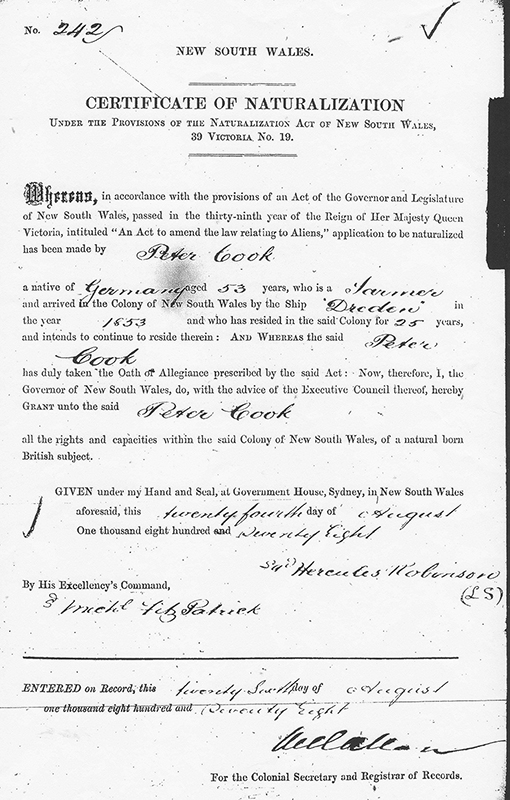 No. 242
NEW SOUTH WALES.
CERTIFICATE OF NATURALIZATION
UNDER THE PROVISIONS OF THE NATURALIZATION ACT OF NEW SOUTH WALES,
39 VICTORIA NO. 19.
Whereas, in accordance with the provisions of an Act of the Governor and Legislature
of New South Wales, passed in the thirty-ninth year of the Reign of Her Majesty Queen
Victoria, intituled "An Act to amend the law relating to Aliens," application to be naturalized
has been made by Peter Cook
a native of Germany aged 53 years, who is a Farmer
and arrived in the Colony of New South Wales by the Ship "Dreden" in
the year 1853 and who has resided in the said Colony for 25 years,
and intends to continue to reside therein: AND WHEREAS the said Peter
Cook
has duly taken the Oath of Allegiance prescribed by the said Act: Now, therefore, I, the
Governor of New South Wales, do, with the advice of the Executive Council thereof, hereby
GRANT unto the said Peter Cook
all the rights and capacities within the said Colony of New South Wales, of a natural born
British subject.
GIVEN under my Hand and Seal, at Government House, Sydney, in New South Wales
aforesaid, this twenty fourth day of August
One thousand eight hundred and Seventy Eight
Sgd Hercules Robinson
(LS)
By His Excellency's Command,
Michl Fitz Patrick
ENTERED on Record, this twenty Sixth day of August
one thousand eight hundred and Seventy Eight
For the Colonial Secretary and Registrar of Records.